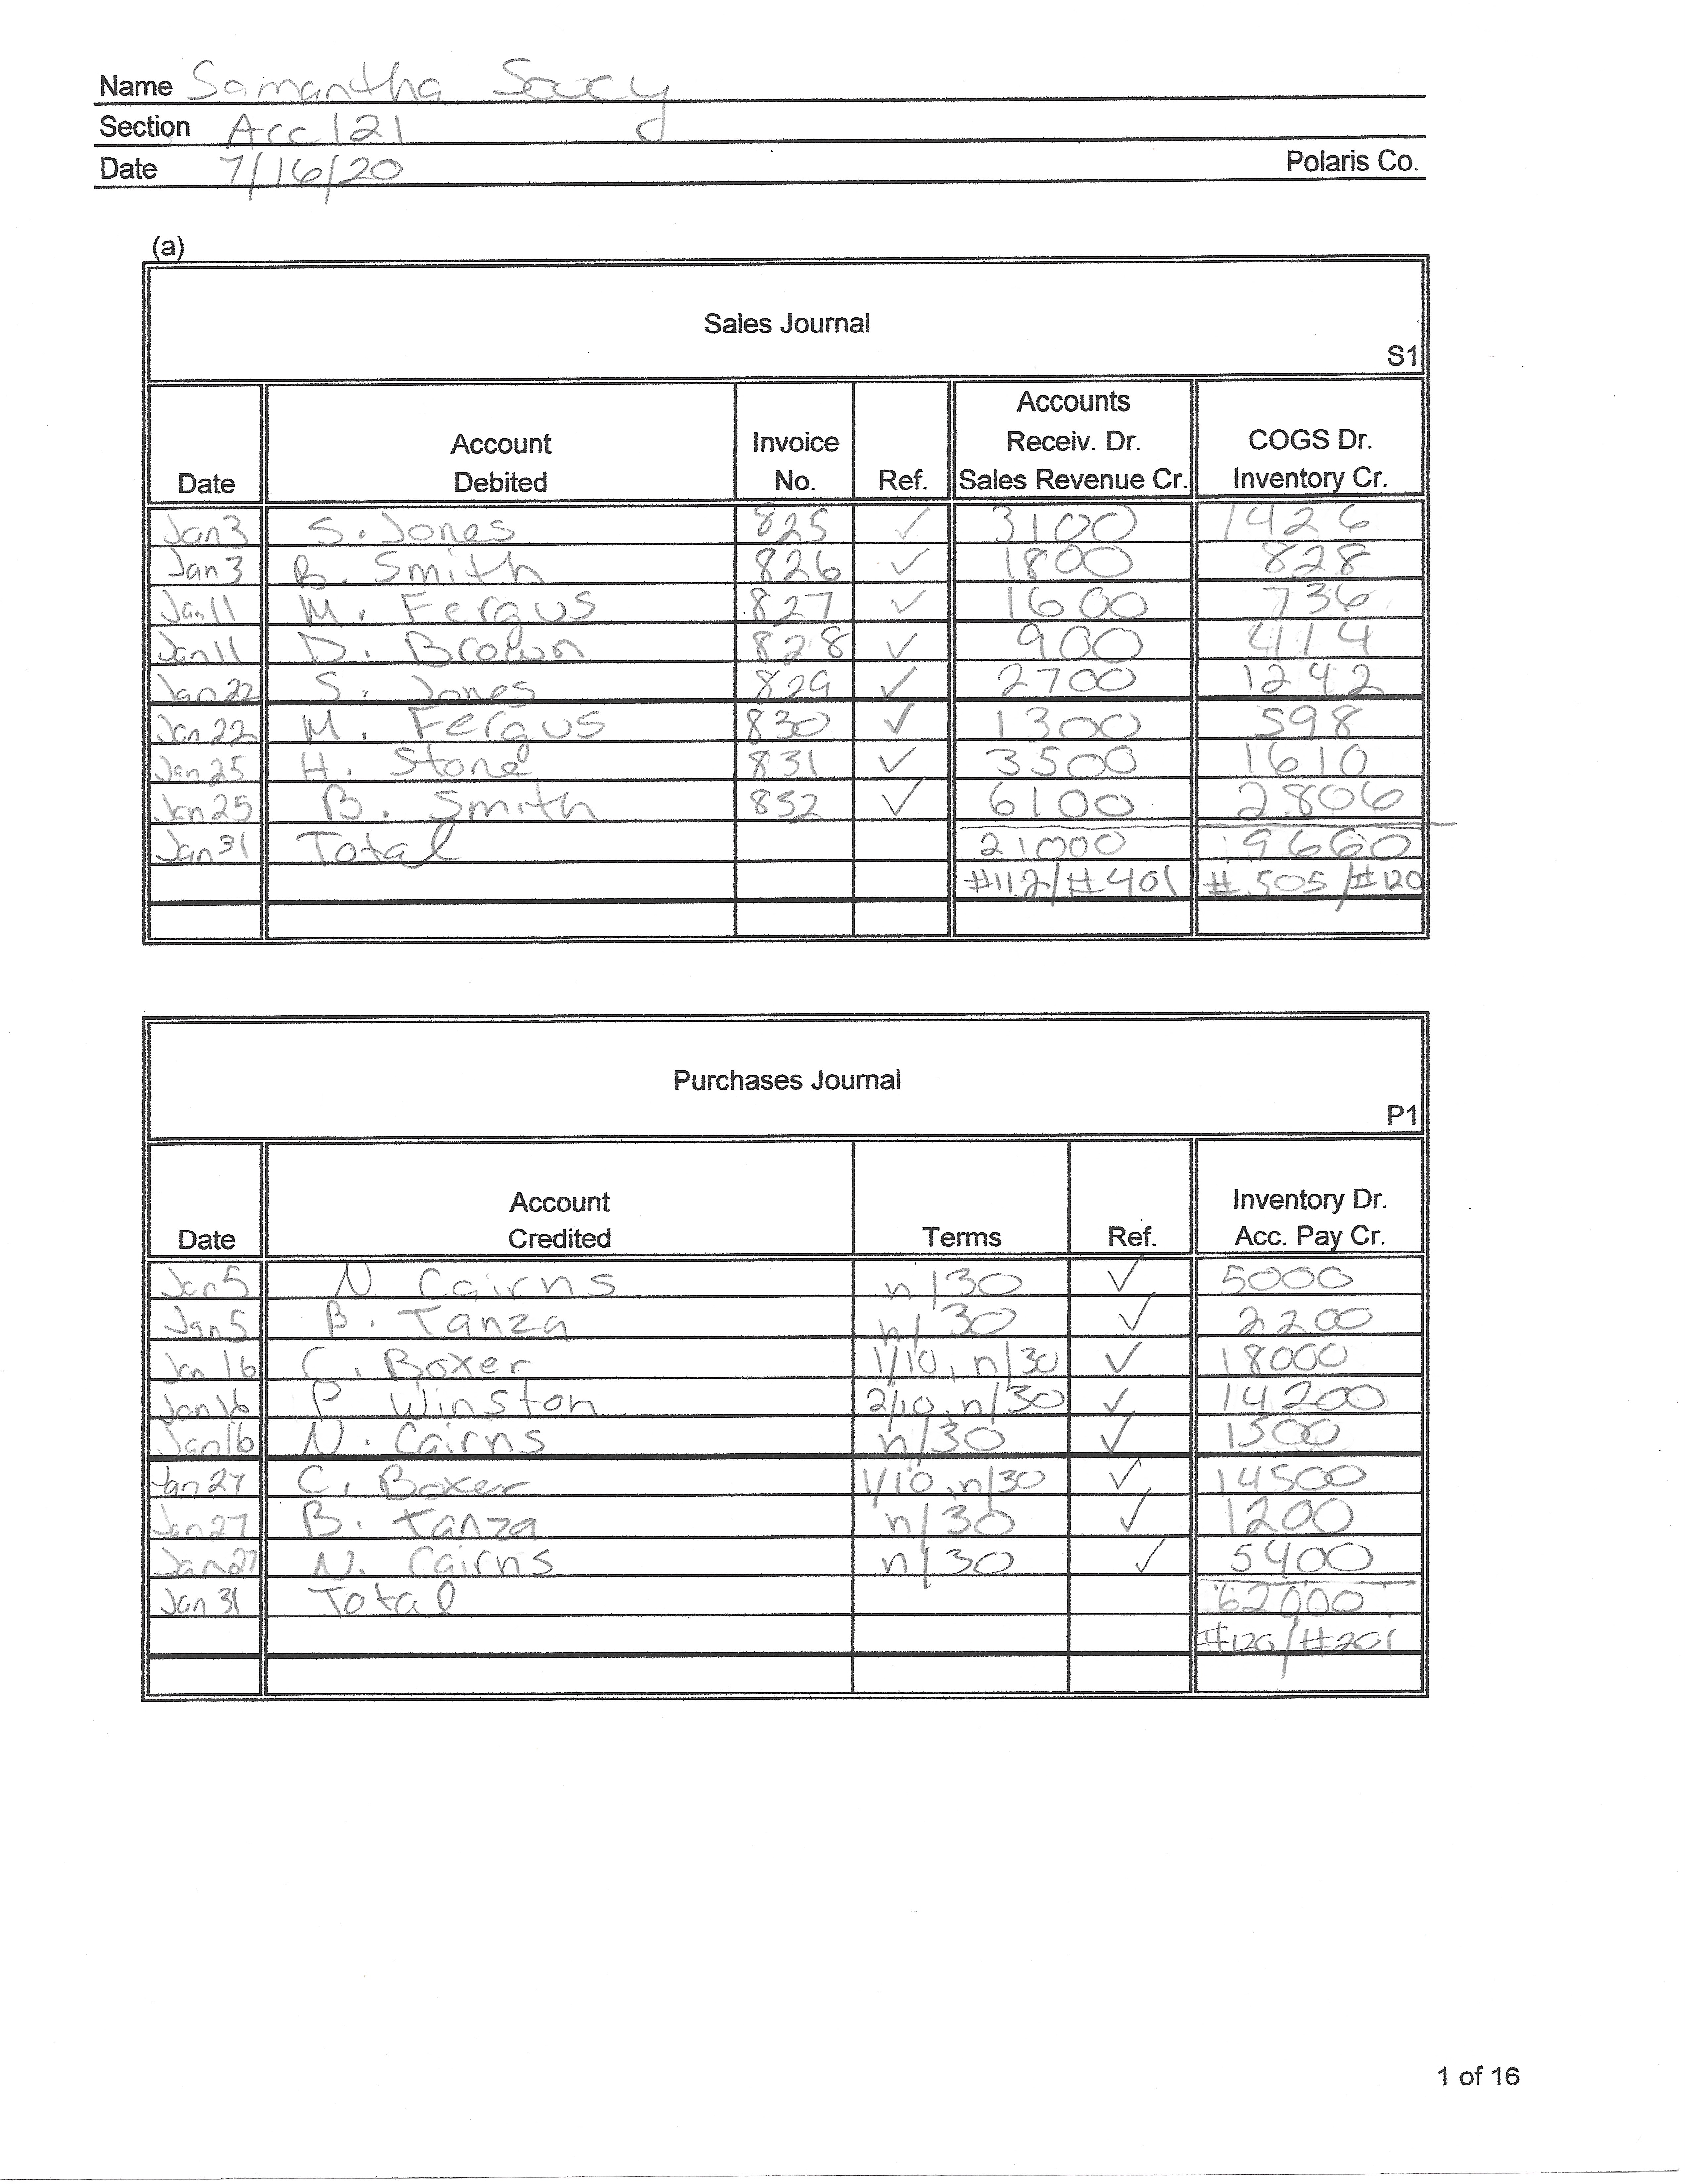 Name Samantha Saucy
Section Acc 121
Date 7/16/20 Polaris Co.
(a)
Sales Journal
S1
Accounts
Account Invoice Receiv. Dr. COGS Dr.
Date Debited No. Ref. Sales Revenue Cr. Inventory Cr.
Jan 3 S. Jones 825 ✓ 3100 1426
Jan 3 B. Smith 826 ✓ 1800 828
Jan 11 M. Fergus 827 ✓ 1600 736
Jan 11 D. Brown 828 ✓ 900 414
Jan 22 S. Jones 829 ✓ 2700 1242
Jan 22 M. Fergus 830 ✓ 1300 598
Jan 25 H. Stone 831 ✓ 3500 1610
Jan 25 B. Smith 832 ✓ 6100 2806
Jan 31 Total 21000 9660
#112/#401 #505/#120
Purchases Journal
P1
Account Inventory Dr.
Date Credited Terms Ref. Acc. Pay Cr.
Jan 5 N Cairns n/30 ✓ 5000
Jan 5 B. Tanza n/30 ✓ 2200
Jan 16 C. Boxer 1/10, n/30 ✓ 18000
Jan 16 P Winston 2/10, n/30 ✓ 14200
Jan 16 N. Cairns n/30 ✓ 1500
Jan 27 C. Boxer 1/10, n/30 ✓ 14500
Jan 27 B. Tanza n/30 ✓ 1200
Jan 27 N. Cairns n/30 ✓ 5400
Jan 31 Total 62000
#120/#201
1 of 16